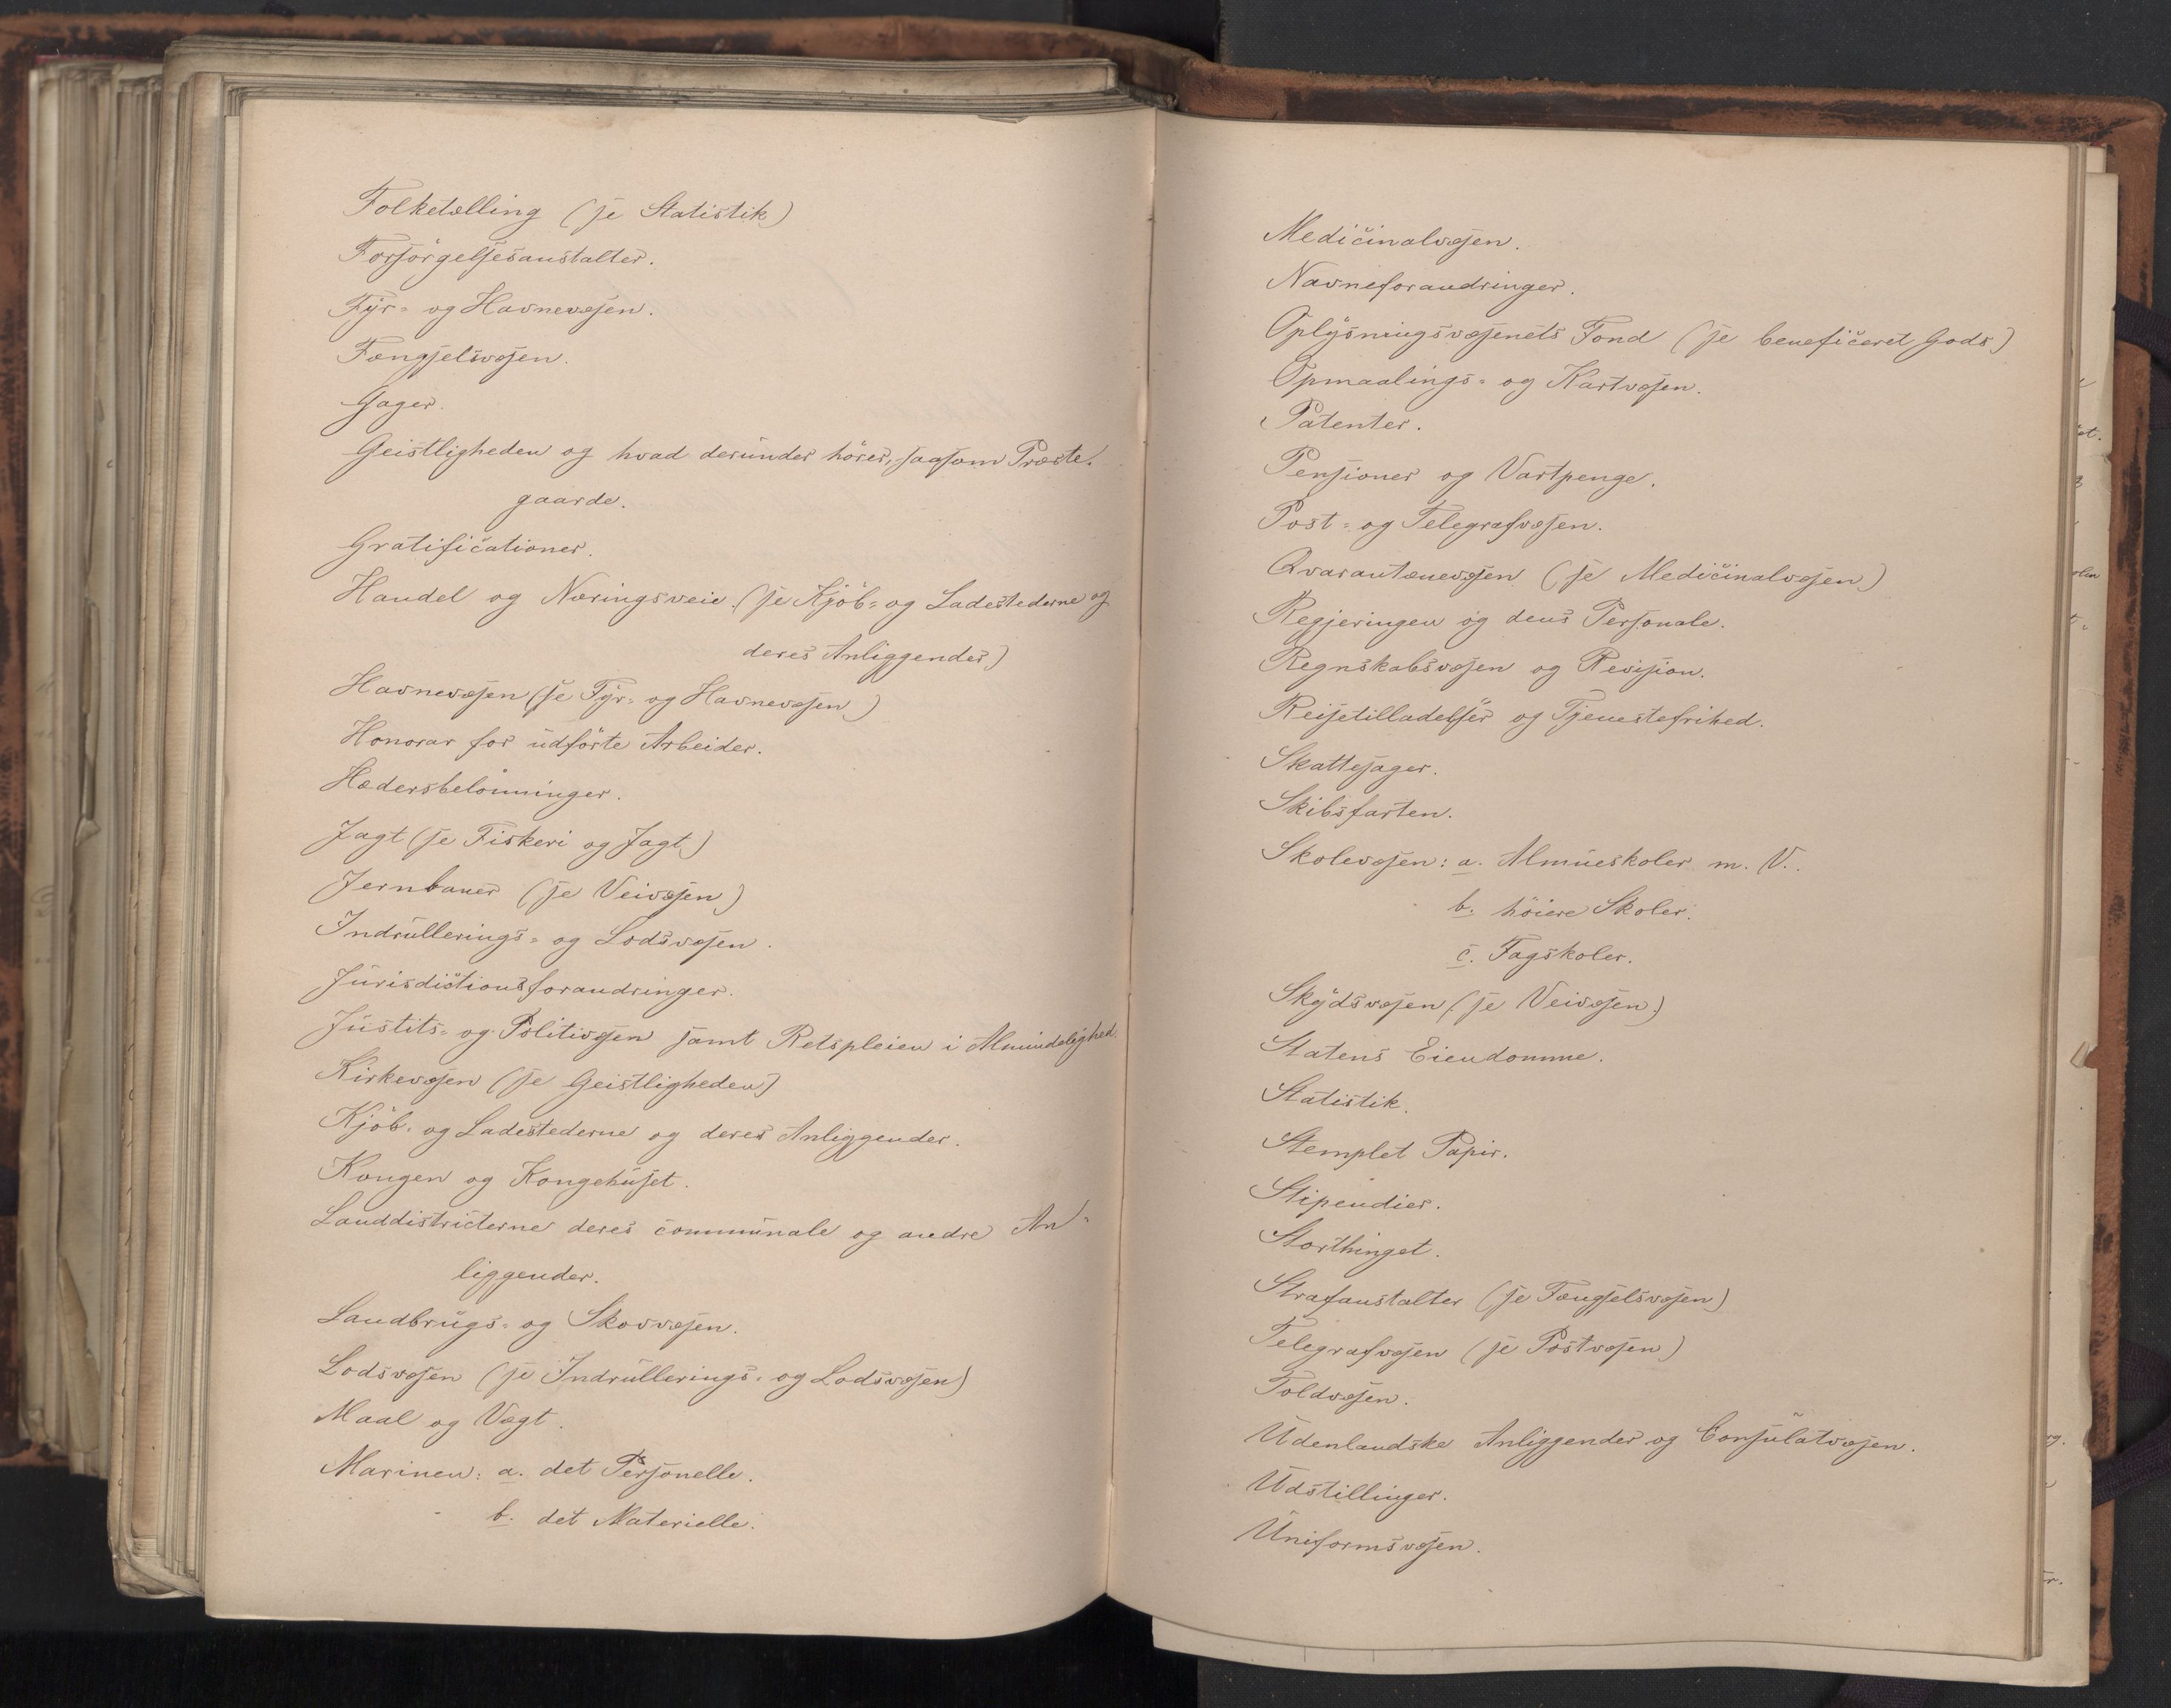 Folketælling (se Statistik)
Forsörgelsesanstalter.
Fyr- og Havnevæsen.
Fængselsvæsen.
Gager.
Geistligheden og hvad derunder hörer, saasom Præste-
gaarde.
Gratificationer.
Handel og Næringsveie (se Kjöb- og Ladestederne og
deres Anliggender)
Havnevæsen (se Fyr- og Havnevæsen)
Honorar for udförte Arbeider.
Hædersbelönninger.
Jagt (se Fiskeri og Jagt)
Jernbaner (se Veivæsen)
Indrullerings- og Lodsvæsen.
Jurisdictionsforandringer.
Justits- og Politivæsen samt Retspleien i Almindelighed.
Kirkevæsen (se Geistligheden)
Kjöb- og Ladestederne og deres Anliggender.
Kongen og Kongehuset.
Landdistricterne deres communale og andre An-
liggender.
Landbrugs- og Skovvæsen.
Lodsvæsen (se Indrullerings- og Lodsvæsen)
Maal og Vægt.
Marinen: a. det Personelle.
b. det Materielle.
Medicinalvæsen.
Navneforandringer.
Oplysningsvæsenets Fond (se beneficeret Gods)
Opmaalings- og Kartvæsen.
Patenter.
Pensioner og Vartpenge.
Post- og Telegrafvæsen.
Qvarantænevæsen (se Medicinalvæsen)
Regjeringen og dens Personale.
Regnskabsvæsen og Revision.
Reisetilladelser og Tjenestefrihed.
Skattesager.
Skibsfarten.
Skolevæsen: a. Almueskoler m. V..
b. höiere Skoler.
c. Fagskoler.
Skydsvæsen (se Veivæsen)
Statens Eiendomme.
Statistik.
Stemplet Papir.
Stipendier.
Storthinget.
Strafanstalter (se Fængselsvæsen)
Telegrafvæsen (se Postvæsen)
Toldvæsen.
Udenlandske Anliggender og Consulatvæsen.
Udstillinger.
Uniformsvæsen.